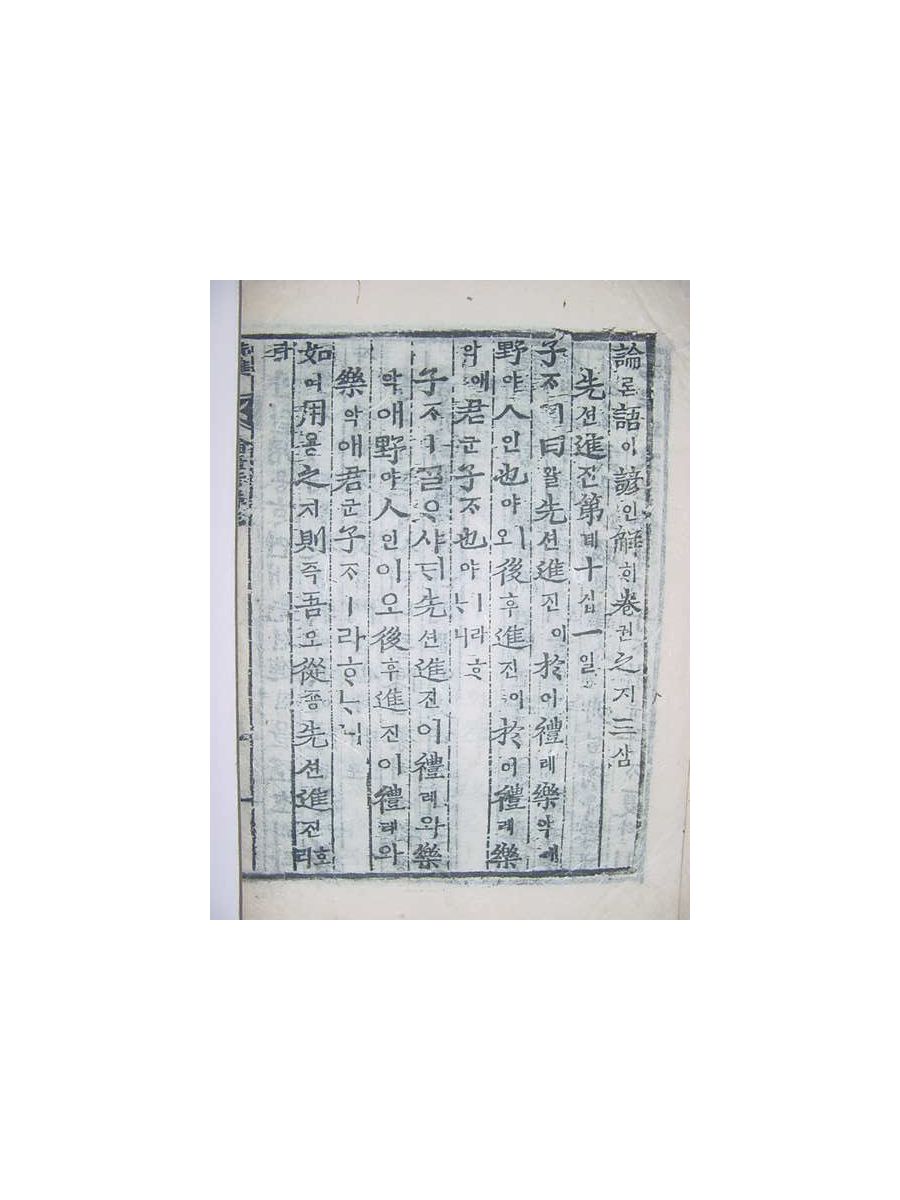 論론語어諺언解ᄒᆡ卷권之지三삼
先션進진第뎨十십一일
子ᄌᆞㅣ曰왈先션進진이於어禮례樂악애
野야人인也야ㅣ오後후進진이於어禮례樂
악애君군子ᄌᆞ也야ㅣ라ᄒᆞᄂᆞ니
子ᄌᆞㅣᄀᆞᆯᄋᆞ샤ᄃᆡ先션進진이禮례와樂
악애野야人인이오後후進진이禮례와
樂악애君군子ᄌᆞㅣ라ᄒᆞᄂᆞ니
如여用용之지則즉吾오從종先션進진호리